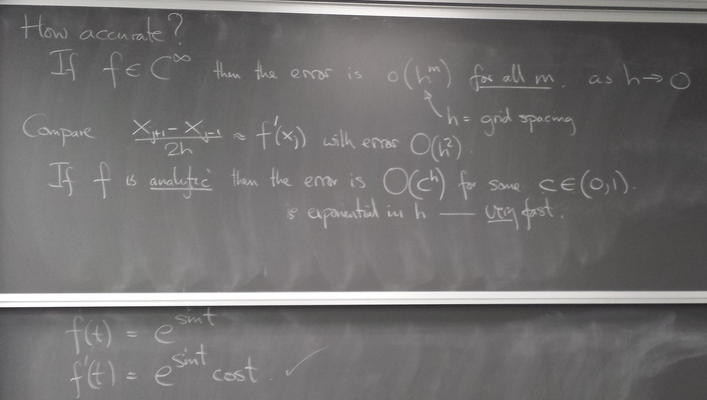 How accurate?
If f ∈ C^∞ then the error is o(h^m) for all m. as h → 0
h = grid spacing
Compare (x_{j+1} - x_{j-1})/2h ≈ f'(x_j) with error O(h²).
If f is analytic then the error is O(c^h) for some c ∈ (0,1).
is exponential in h — very fast.
f(t) = e^{sin t}
f'(t) = e^{sin t} cos t. ✓